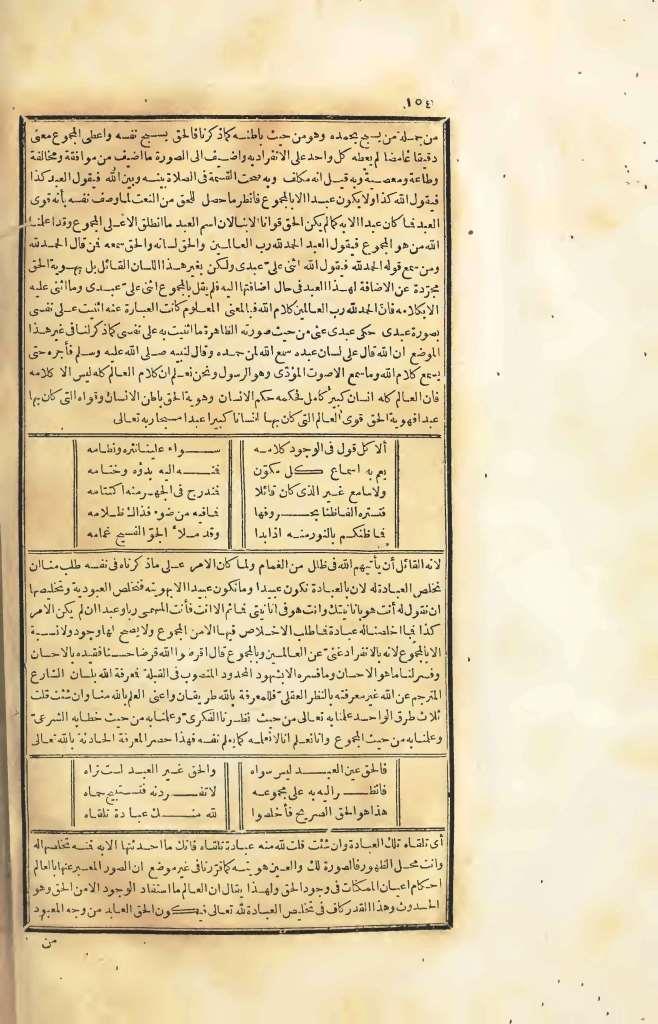 ١٥٤
من جملة من يسبح بحمده وهو من حيث باطنه كما ذكرنا فالحق يسبح نفسه واعطى المجموع معنى
دقيقا غامضا لم يعطه كل واحد على الانفراد به واضيف الى الصورة ما أضيف من موافقة ومخالفة
وطاعة ومعصية وبه قيل انه مكلف وبه صحت القسمة في الصلاة بينه وبين الله فيقول العبد كذا
فيقول الله كذا ولا يكون عبدا الا بالمجموع فانظر ما حصل للحق من النعت لما وصف نفسه بأنه قوى
العبد فما كان عبدا الا به كما لم يكن الحق قوانا الا بنا لان اسم العبد ما انطلق الا على المجموع وقد اعلمنا
الله من هو المجموع فيقول العبد الحمد لله رب العالمين والحق لسانه والحق سمعه فمن قال الحمد لله
ومن سمع قوله الحمد لله فيقول الله اثنى على عبدى ولكن بغير هذا اللسان القائل بل بهوية الحق
مجرّدة عن الاضافة لهذا العبد في حال اضافتها اليه فلم يقل بالمجموع اثنى على عبدى وما اثنى عليه
الا بكلامه فان الحمد لله رب العالمين كلام الله فبالمعنى المعلوم كانت العبارة عنه اثنيت على نفسى
بصورة عبدى حكى عبدى عنى من حيث صورته الظاهرة ما اثنيت به على نفسى كما ذكرنا فى غير هذا
الموضع ان الله قال على لسان عبده سمع الله لمن حمده وقال لنبيه صلى الله عليه وسلم فأجره حتى
يسمع كلام الله وما سمع الا صوت المؤدّى وهو الرسول ونحن نعلم ان كلام العالم كله ليس الا كلامه
فان العالم كله انسان كبير كامل فحكمه حكم الانسان وهوية الحق باطن الانسان وقواه التى كان بها
عبدا فهوية الحق قوى العالم التى كان بها انسانا كبيرا عبدا مسبحا ربه تعالى
ألا كل قول فى الوجود كلامه سواء علينا نثره ونظامه
يعم به اسماع كل مكوّن فمنه اليه بدؤه وختامه
ولا سامع غير الذى كان قائلا فمندرج فى الجهر منه اكتتامه
فتستره الفاظنا بحروفها فما فيه من ضوء فذاك ظلامه
فما ظنكم بالنور منه اذا بدا وقد ملأ الجوّ الفسيح غمامه
لانه القائل أن يأتيهم الله فى ظلل من الغمام ولما كان الامر على ما ذكرناه فى نفسه طلب منا ان
نخلص العبادة له لان بالعبادة نكون عبيدا وما نكون عبيدا الا بهويته فنخلص العبودية وتخليصها
ان نقول له أنت هو بانانيتك وانت هو فى انانيتى فما ثم الا انت فأنت المسمى ربا وعبدا ان لم يكن الامر
كذا فما اخلصنا له عبادة فما طلب الاخلاص فيها الا من المجموع ولا يصح لها وجود ولا نسبة
الا بالمجموع لانه بالانفراد غنىّ عن العالمين وبالمجموع قال اقرضوا الله قرضا حسنا فقيده بالاحسان
وفسر لنا ما هو الاحسان وما فسره الا بشهود المحدود المنصوب فى القبلة فمعرفة الله بلسان الشارع
المترجم عن الله غير معرفته بالنظر العقلىّ فللمعرفة بالله طريقان واعنى العلم بالله منا وان شئت قلت
ثلاث طرق الواحد علمنا به تعالى من حيث نظرنا الفكرى وعلمنا به من حيث خطابه الشرعىّ
وعلمنا به من حيث المجموع وانا نعلم انا لا نعلمه كما يعلم نفسه فهذا حصر المعرفة الحادثة بالله تعالى
فالحق عين العبد ليس سواه والحق غير العبد لست تراه
فانظر اليه به على مجموعه لا تفردنه فتستبيح حماه
هذا هو الحق الصريح فأخلصوا لله منك عبادة تلقاه
أى تلقاه تلك العبادة وان شئت قلت لله منه عبادة تلقاه فانك ما احدثتها الا به فمنه تخلصها له
وانت محل الظهور فالصورة لك والعين هويته كما قررنا فى غير موضع ان الصور المعبر عنها بالعالم
احكام اعيان الممكنات فى وجود الحق ولهذا يقال ان العالم ما استفاد الوجود الا من الحق وهو
الحدوث وهذا القدر كاف فى تخليص العبادة لله تعالى فيكون الحق العابد من وجه المعبود
من